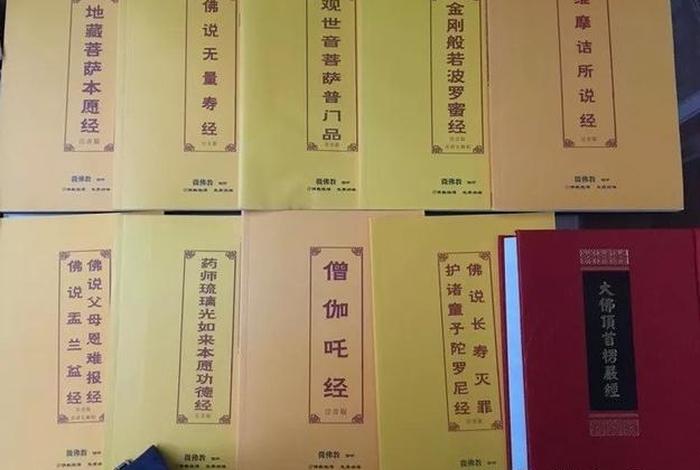 地藏菩萨本愿经
注音版
佛说无量寿经
注音版
微佛教
观世音菩萨普门品
注音版
微佛教
金刚般若波罗蜜经
注音版
微佛教
维摩诘所说经
注音版
微佛教
佛说父母恩难报经
佛说盂兰盆经
注音版
微佛教
药师琉璃光如来本愿功德经
注音版
微佛教
僧伽吒经
注音版
微佛教
佛说长寿灭罪
护诸童子陀罗尼经
注音版
微佛教
大佛頂首楞嚴經